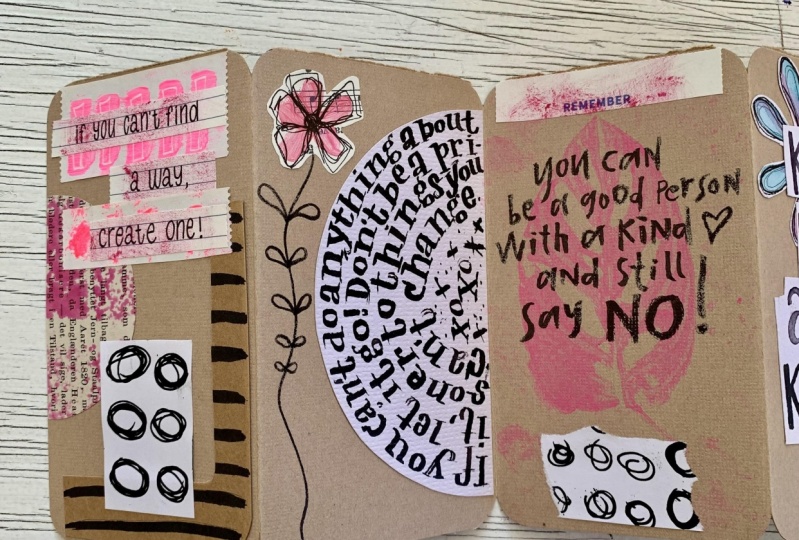 if you can't find
a way,
create one!
If you can't do anything about
it, let it go! Don't be a pri-
soner to things you
can't change.
REMEMBER
you can
be a good person
with a kind ♡
and still
say NO!